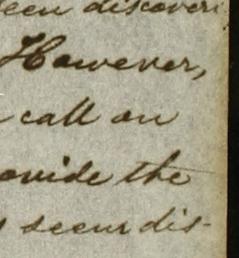 een discoveri
However,
call on
ovide the
s seem dis-